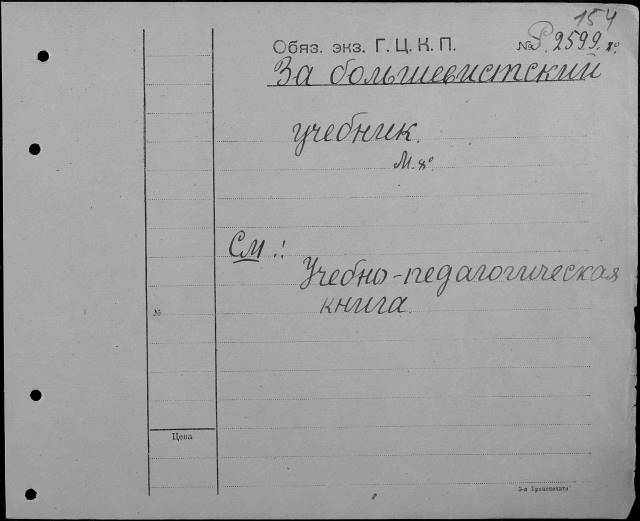 154
Обяз. экз. Г. Ц. К. П. № P. 2599. 8°
За большевистский
учебник.
М. 8°.
См.:
Учебно-педагогическая
книга.
№
Цена
3-я Транспечать